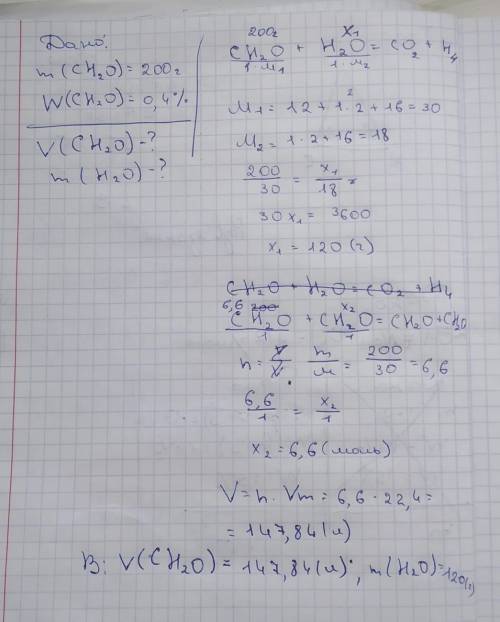 Дано:
m(CH₂O)=200г
W(CH₂O)=0,4%
V(CH₂O)-?
m(H₂O)-?
200г x₁
CH₂O + H₂O = CO₂ + H₄
1·M₁ 1·M₂
2
M₁ = 12+1·2+16=30
M₂ = 1·2+16=18
200/30 = x₁/18
30x₁ = 3600
x₁ = 120(г)
CH₂O + H₂O = CO₂ + H₄
6,6 200 x₂
CH₂O + CH₂O = CH₂O+CH₃O
1 1
n = m/M = 200/30 = 6,6
6,6/1 = x₂/1
x₂ = 6,6(моль)
V = n·Vm = 6,6·22,4=
= 147,84(л)
В: V(CH₂O) = 147,84(л), m(H₂O)=120(г)